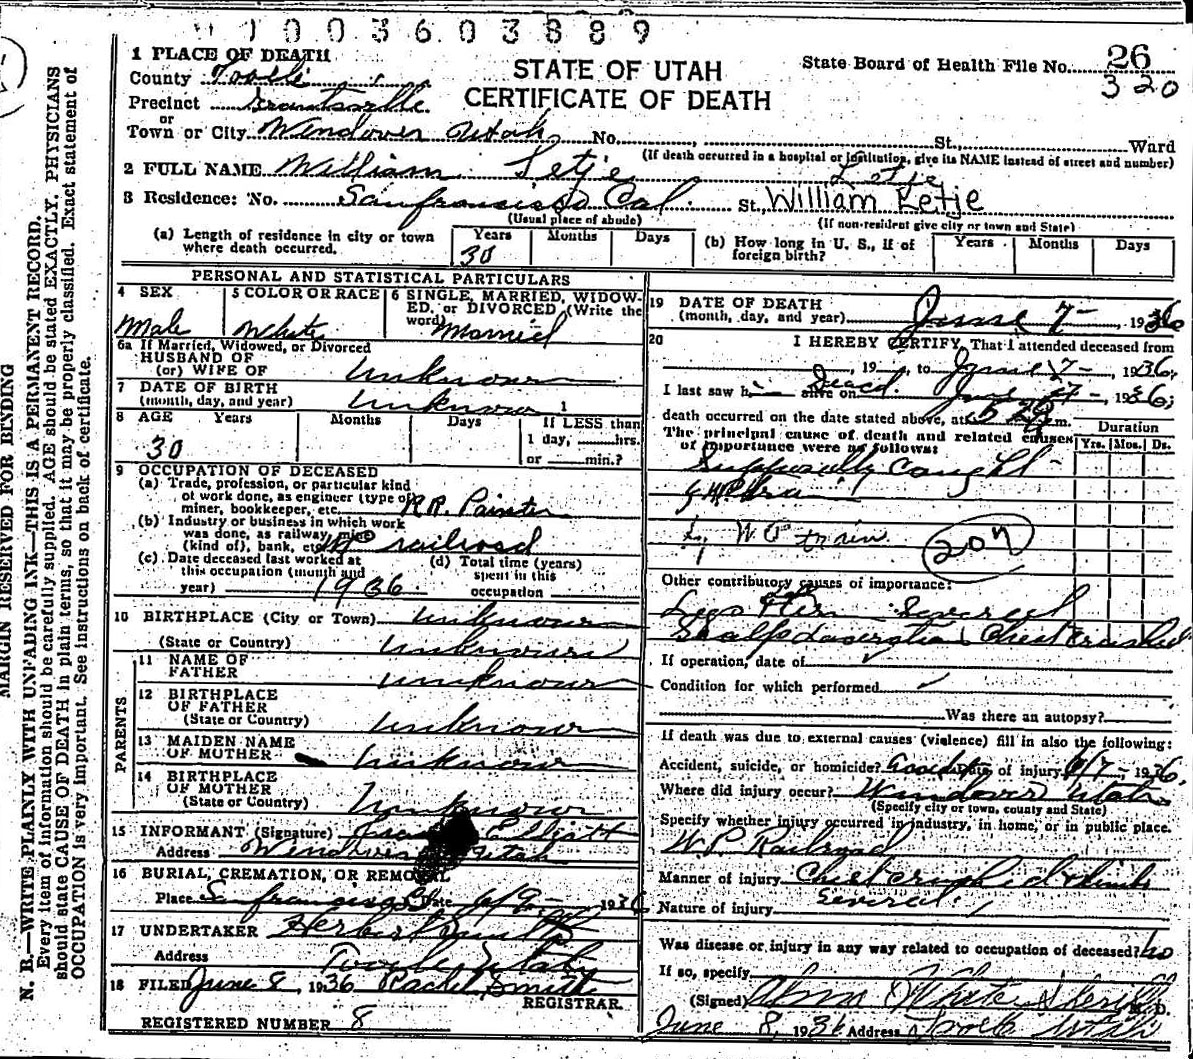 1003603889
1 PLACE OF DEATH
County Tooele
Precinct Grantsville
or
Town or City Wendover Utah No. St., Ward
STATE OF UTAH
CERTIFICATE OF DEATH
State Board of Health File No. 26
320
(If death occurred in a hospital or institution, give its NAME instead of street and number)
2 FULL NAME William Letje
Letje
3 Residence: No. Sanfrancisco Cal. St. William Letje
(Usual place of abode) (If non-resident give city or town and State)
(a) Length of residence in city or town where death occurred. Years Months Days
30
(b) How long in U. S., if of foreign birth? Years Months Days
PERSONAL AND STATISTICAL PARTICULARS
4 SEX
Male
5 COLOR OR RACE
White
6 SINGLE, MARRIED, WIDOW-
ED, or DIVORCED (Write the
word) Married
6a If Married, Widowed, or Divorced
HUSBAND OF
(or) WIFE OF Unknown
7 DATE OF BIRTH
(month, day, and year) Unknown 1
8 AGE Years Months Days If LESS than
30 1 day, hrs.
or min.?
9 OCCUPATION OF DECEASED
(a) Trade, profession, or particular kind
of work done, as engineer (type of
miner, bookkeeper, etc. R.R. Painter
(b) Industry or business in which work
was done, as railway, mine
(kind of), bank, etc. railroad
(c) Date deceased last worked at
this occupation (month and
year) 1936
(d) Total time (years)
spent in this
occupation
10 BIRTHPLACE (City or Town) Unknown
(State or Country) Unknown
PARENTS
11 NAME OF
FATHER Unknown
12 BIRTHPLACE
OF FATHER
(State or Country) Unknown
13 MAIDEN NAME
OF MOTHER Unknown
14 BIRTHPLACE
OF MOTHER
(State or Country) Unknown
15 INFORMANT (Signature) Elliott
Address Wendover Utah
16 BURIAL, CREMATION, OR REMOVAL
Place Sanfrancisco Date 6/9- 1936
17 UNDERTAKER Herbert
Address Tooele Utah
18 FILED June 8, 1936 Rachel Smith
REGISTRAR.
REGISTERED NUMBER 8
19 DATE OF DEATH
(month, day, and year) June 7-, 1936
20 I HEREBY CERTIFY, That I attended deceased from
, 19 , to June 7-, 1936;
I last saw h alive on Dead June 7-, 1936;
death occurred on the date stated above, at m.
The principal cause of death and related causes
of importance were as follows:
Duration
Yrs. Mos. Ds.
Supposedly Caught
by W P train
207
Other contributory causes of importance:
Severed
Chest Crushed
If operation, date of
Condition for which performed
Was there an autopsy?
If death was due to external causes (violence) fill in also the following:
Accident, suicide, or homicide? Accident Date of injury 6/7- 1936.
Where did injury occur? Wendover Utah
(Specify city or town, county and State)
Specify whether injury occurred in industry, in home, or in public place.
W.P. Railroad
Manner of injury Chest crushed & limbs
Severed.
Nature of injury
Was disease or injury in any way related to occupation of deceased? No
If so, specify
(Signed) Alma White Sheriff M. D.
June 8, 1936 Address Tooele Utah
MARGIN RESERVED FOR BINDING
N. B.—WRITE PLAINLY WITH UNFADING INK—THIS IS A PERMANENT RECORD.
Every item of information should be carefully supplied. AGE should be stated EXACTLY, PHYSICIANS
should state CAUSE OF DEATH in plain terms, so that it may be properly classified. Exact statement of
OCCUPATION is very important. See instructions on back of certificate.